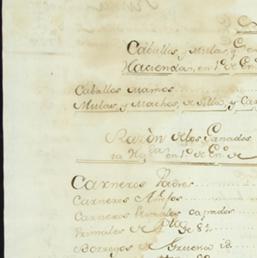 Caballos y Mulas, q̃ en
Hacienda, en 1.º de En.º
Caballos mansos
Mulas y Machos, de Silla, y Car
Razòn delos Ganados
ta Haz.da en 1.º de En.º de
Carneros Padres
Carneros Añejos
Carneros Primales capados
Primales de Pto de 82
Borregos de Gruesa id.